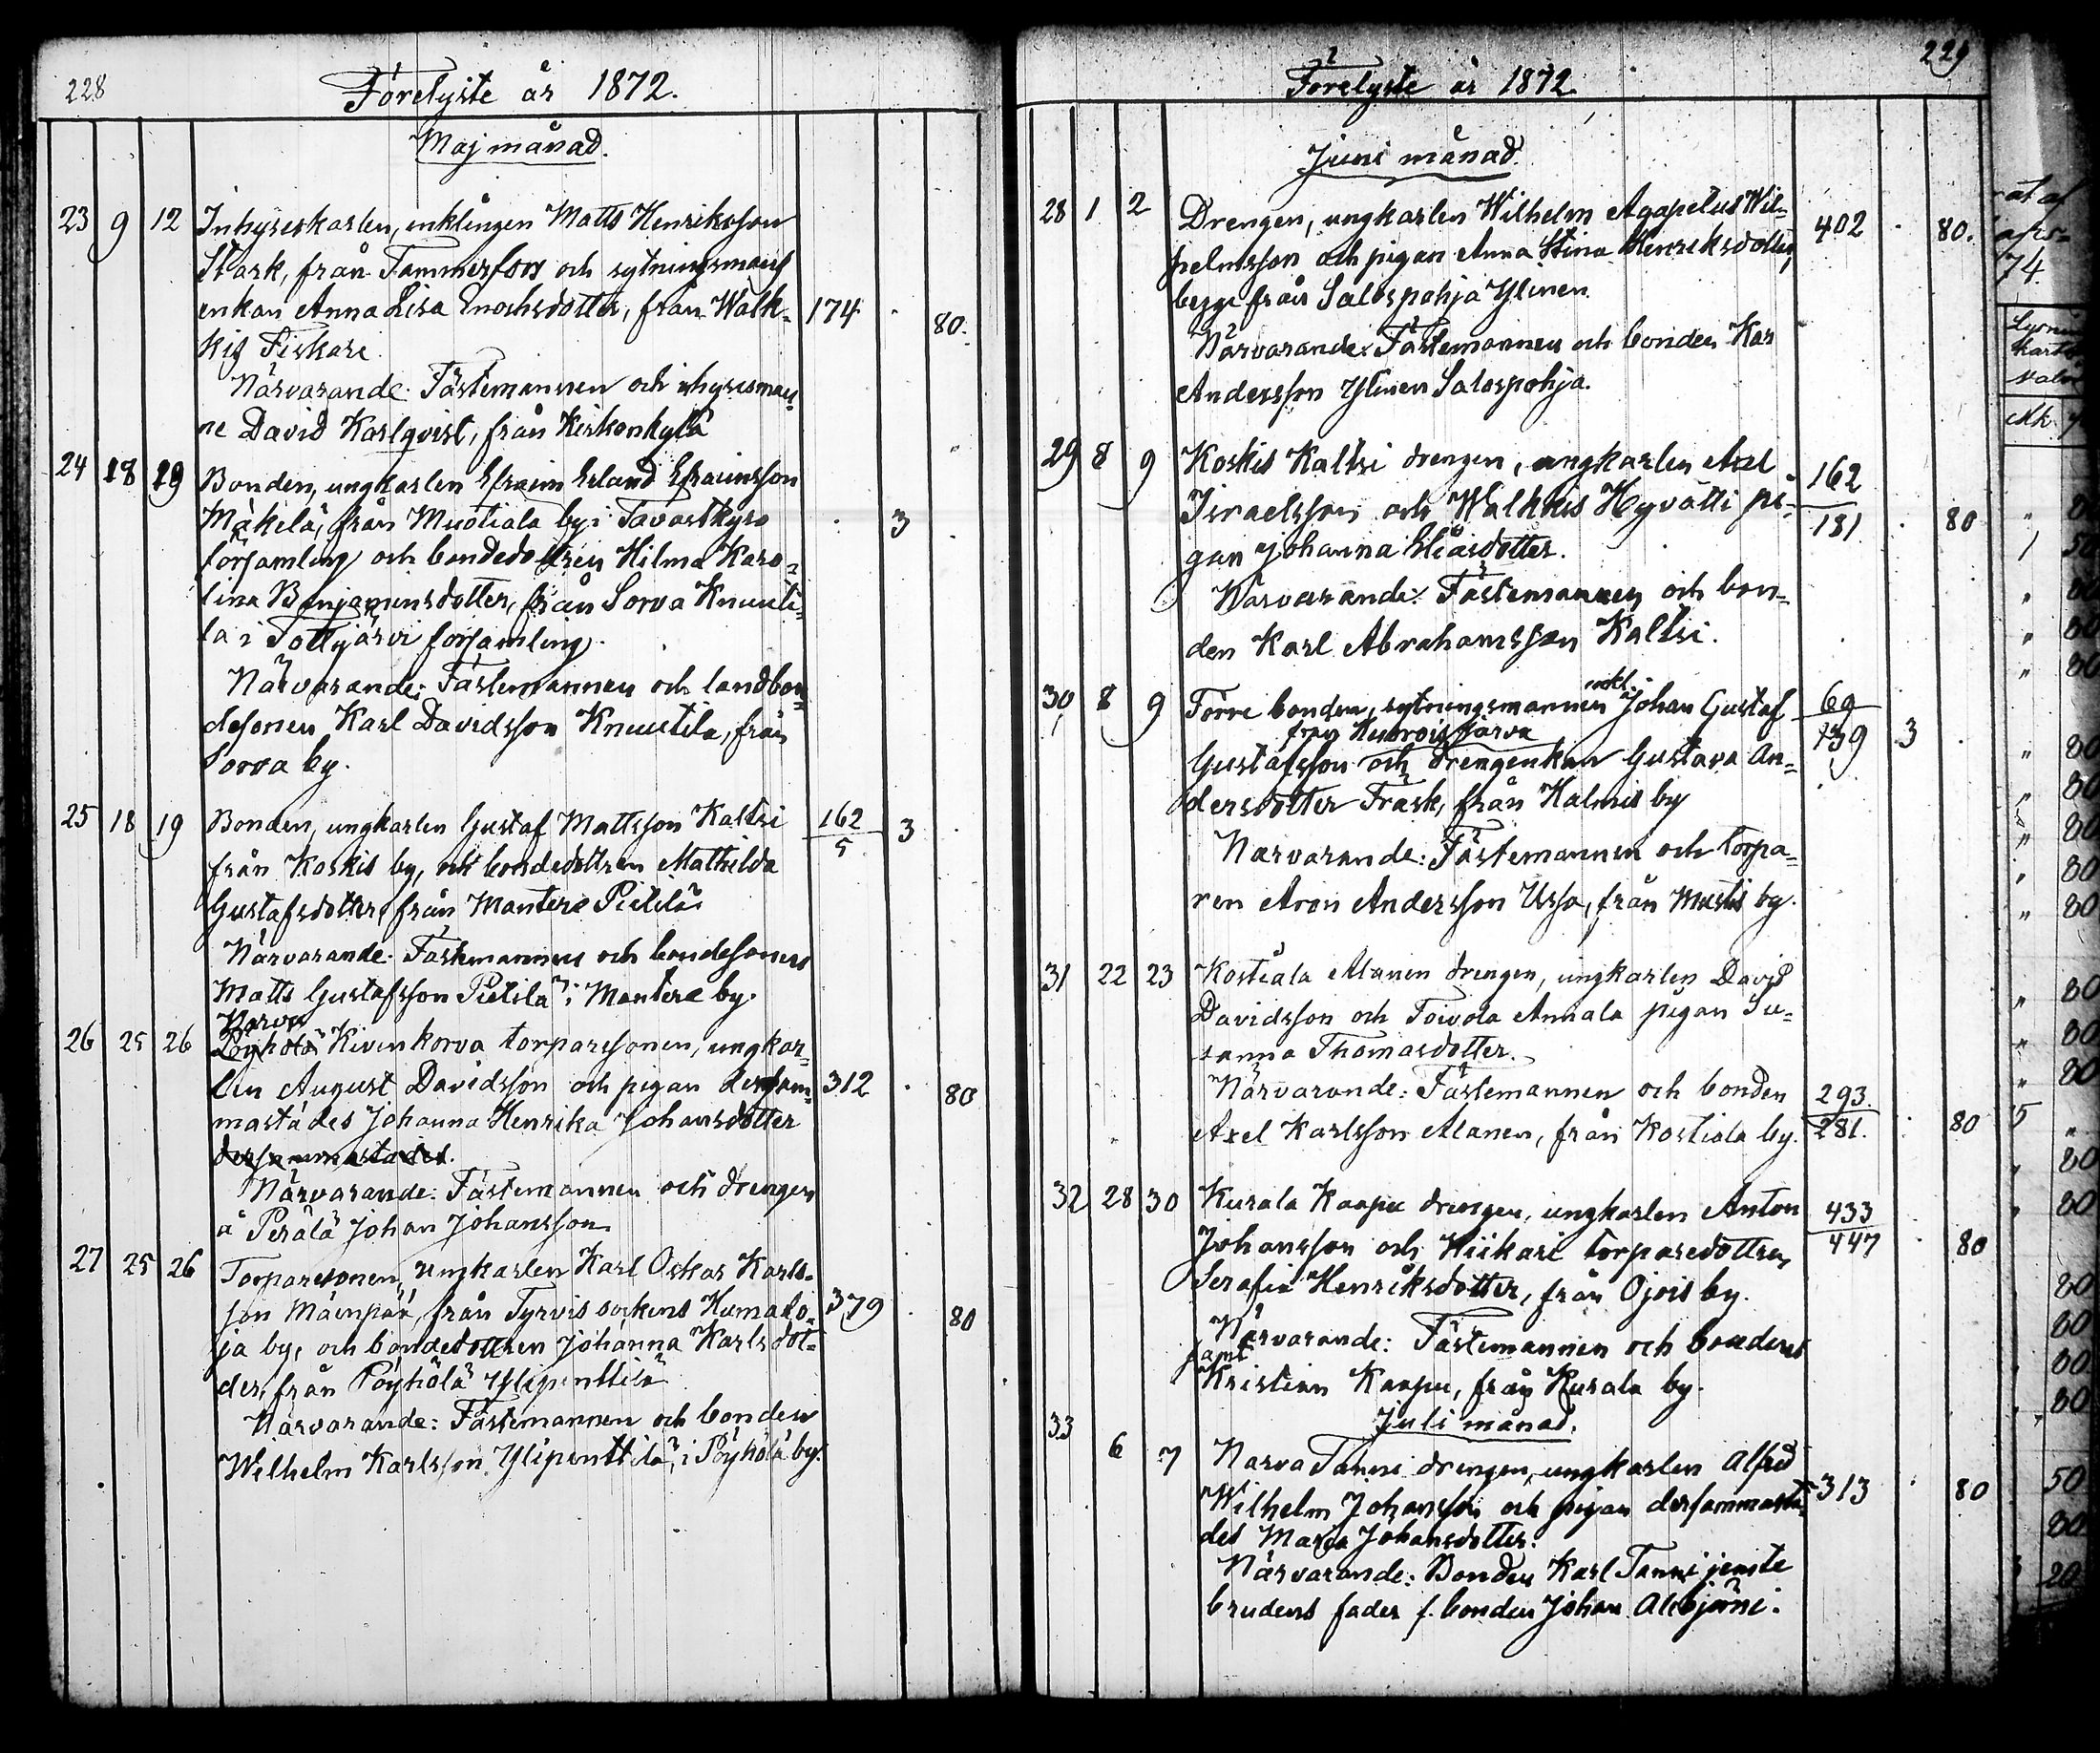 228
Förelyste år 1872.
Maj månad.
23 9 12 Inhyseskarlen, enklingen Matts Henriksson
Stark, från Tammerfors och sytningsmans
enkan Anna Lisa Enochsdotter, från Walk- 174 80.
kis Fiskari.
Närvarande: Fästemannen och inhysesman-
ne David Karlqvist, från Kirkonkylä
24 18 19 Bonden, ungkarlen Efraim Erland Efraimsson
Mäkelä, från Muotiala by i Tavastkyro 3
församling och bondedottren Hilma Karo-
lina Benjaminsdotter, från Sorva Knuuti-
la i Tottijärvi församling.
Närvarande: Fästemannen och landbon-
desonen Karl Davidsson Knuutila, från
Sorva by.
25 18 19 Bonden, ungkarlen Gustaf Mattsson Kaltsi 162/5 3
från Koskis by, och bondedottren Mathilda
Gustafsdotter, från Mantere Pietilä
Närvarande: Fästemannen och bondesonen
Matts Gustafsson Pietilä i Mantere by.
Narva
26 25 26 Pöyhölä Kivenkorva torparesonen, ungkar-
len August Davidsson och pigan dersam- 312 80
mastädes Johanna Henrika Johansdotter
dersammastädes.
Närvarande: Fästemannen och drengen
å Perälä Johan Johansson
27 25 26 Torparesonen, ungkarlen Karl Oskar Karls-
son Mäenpää, från Tyrvis sockens Humalo- 379 80
ja by, och bondedottren Johanna Karlsdot-
der, från Pöyhölä Ylipenttilä
Närvarande: Fästemannen och bonden
Wilhelm Karlsson Ylipenttilä, i Pöyhölä by.
229
Förelyste år 1872.
Juni månad.
28 1 2 Drengen, ungkarlen Wilhelm Agapetus Wil- 402 80.
helmsson och pigan Anna Stina Henriksdotter,
begge från Salospohja Ylinen.
Närvarande: Fästemannen och bonden Kar
Andersson Ylinen Salospohja.
29 8 9 Koskis Kaltsi drengen, ungkarlen Axel 162
Israelsson och Walkkis Hyvätti pi- 181 80
gan Johanna Eliasdotter.
Närvarande: Fästemannen och bon-
den Karl Abrahamsson Kaltsi.
enkl.
30 8 9 Förre bonden, sytningsmannen Johan Gustaf 69
från Kuvrois Järva 139 3
Gustafsson och drengenkan Gustava An-
dersdotter Frask, från Halmis by
Närvarande: Fästemannen och torpa-
ren Aron Andersson Usso, från Mustis by.
31 22 23 Kostiala Alanen drengen, ungkarlen David
Davidsson och Toivola Annala pigan Su-
sanna Thomasdotter.
Närvarande: Fästemannen och bonden 293.
Axel Karlsson Alanen, från Kostiala by. 281. 80
32 28 30 Kurala Kaapu drengen, ungkarlen Anton 433
Johansson och Kiikari torparedottren 447 80
Serafia Henriksdotter, från Ojois by.
Närvarande: Fästemannen och bonden
samt
Kristian Kaapu, från Kurala by.
33 Juli månad.
6 7 Narva Tanni drengen, ungkarlen Alfred
Wilhelm Johansson och pigan dersammastä- 313 80
des Maria Johansdotter.
Närvarande: Bonden Karl Tanni jemte
brudens fader f. bonden Johan